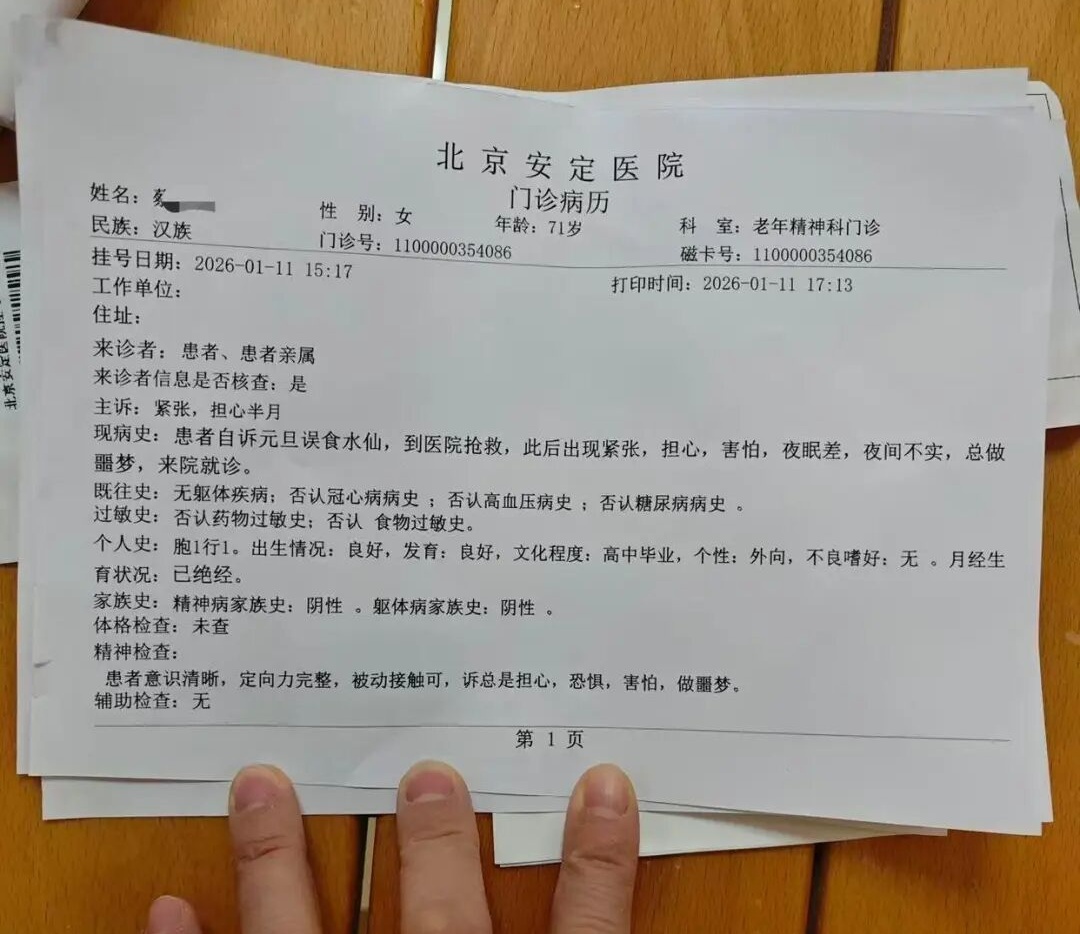 北京安定医院
门诊病历
姓名：蔡
性 别：女 年龄：71岁 科 室：老年精神科门诊
民族：汉族 门诊号：1100000354086 磁卡号：1100000354086
挂号日期：2026-01-11 15:17 打印时间：2026-01-11 17:13
工作单位：
住址：
来诊者：患者、患者亲属
来诊者信息是否核查：是
主诉：紧张，担心半月
现病史：患者自诉元旦误食水仙，到医院抢救，此后出现紧张，担心，害怕，夜眠差，夜间不实，总做
噩梦，来院就诊。
既往史：无躯体疾病；否认冠心病病史 ；否认高血压病史 ；否认糖尿病病史 。
过敏史：否认药物过敏史；否认 食物过敏史。
个人史：胞1行1。出生情况：良好，发育：良好，文化程度：高中毕业，个性：外向，不良嗜好：无 。月经生
育状况：已绝经。
家族史：精神病家族史：阴性 。躯体病家族史：阴性 。
体格检查：未查
精神检查：
患者意识清晰，定向力完整，被动接触可，诉总是担心，恐惧，害怕，做噩梦。
辅助检查：无
第 1 页
北京安定医院